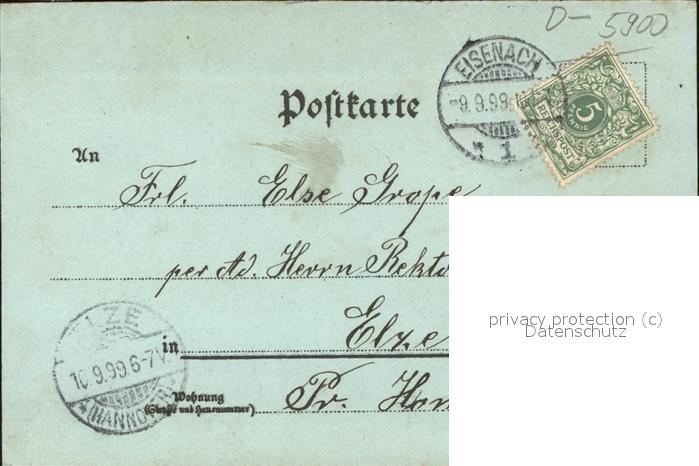 D - 5900
EISENACH
-9.9.99.
* 1
5
PFENNIG
REICHSPOST
Postkarte
An
Frl. Else Grope
per Ad. Herrn Rekto
privacy protection (c)
Datenschutz
ELZE
in Elze
10.9.99.6-7V.
*(HANNOVER)*
Wohnung
(Straße und Hausnummer)
Pr. Han